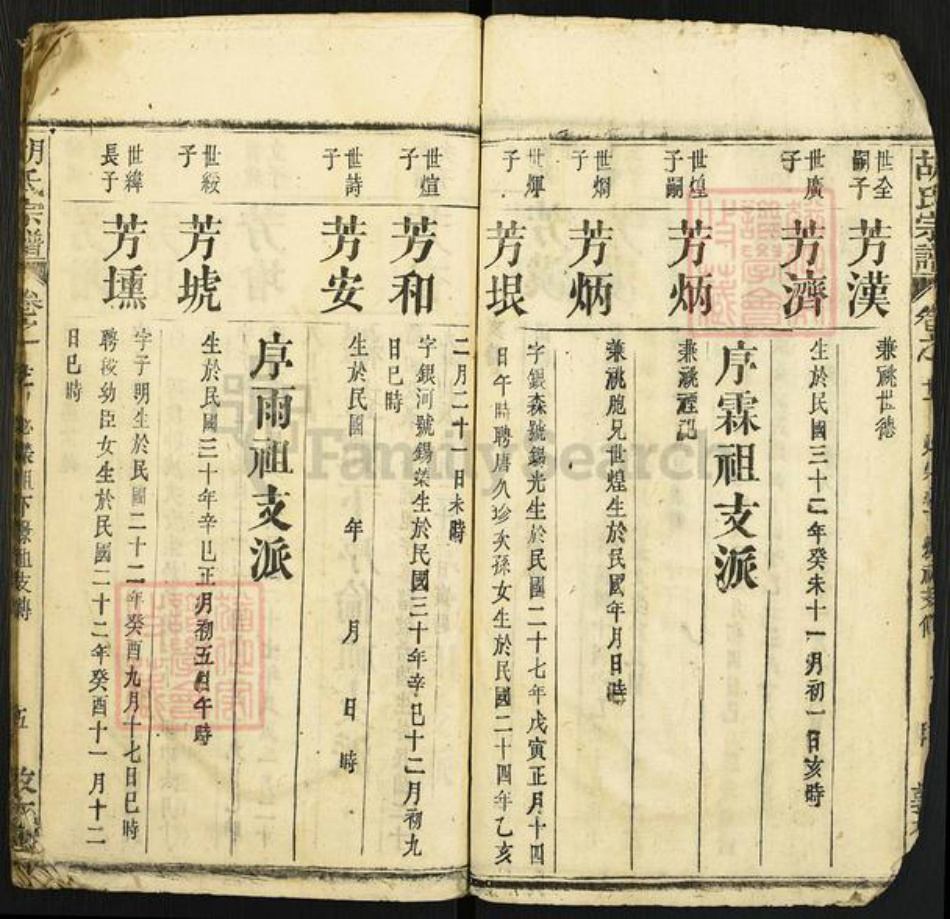 胡氏宗譜
世全嗣子
芳漢
兼祧世德
世廣子
芳濟
生於民國三十二年癸未十一月初一日亥時
序霖祖支派
世煌嗣子
芳炳
兼祧
世炯子
芳炳
兼祧胞兄世煌生於民國年月日時
世煇子
芳垠
字銀森號錫光生於民國二十七年戊寅正月十四
日午時聘唐久珍次孫女生於民國二十四年乙亥
二月二十一日未時
世煊子
芳和
字銀河號錫榮生於民國三十年辛巳十二月初九
日巳時
世詩子
芳安
生於民國 年 月 日 時
序雨祖支派
世綏子
芳琥
生於民國三十年辛巳正月初五日午時
世緯長子
芳壎
字子明生於民國二十二年癸酉九月十七日巳時
聘 幼臣女生於民國二十二年癸酉十一月十二
日巳時
胡氏宗譜
卷之
五
FamilySearch